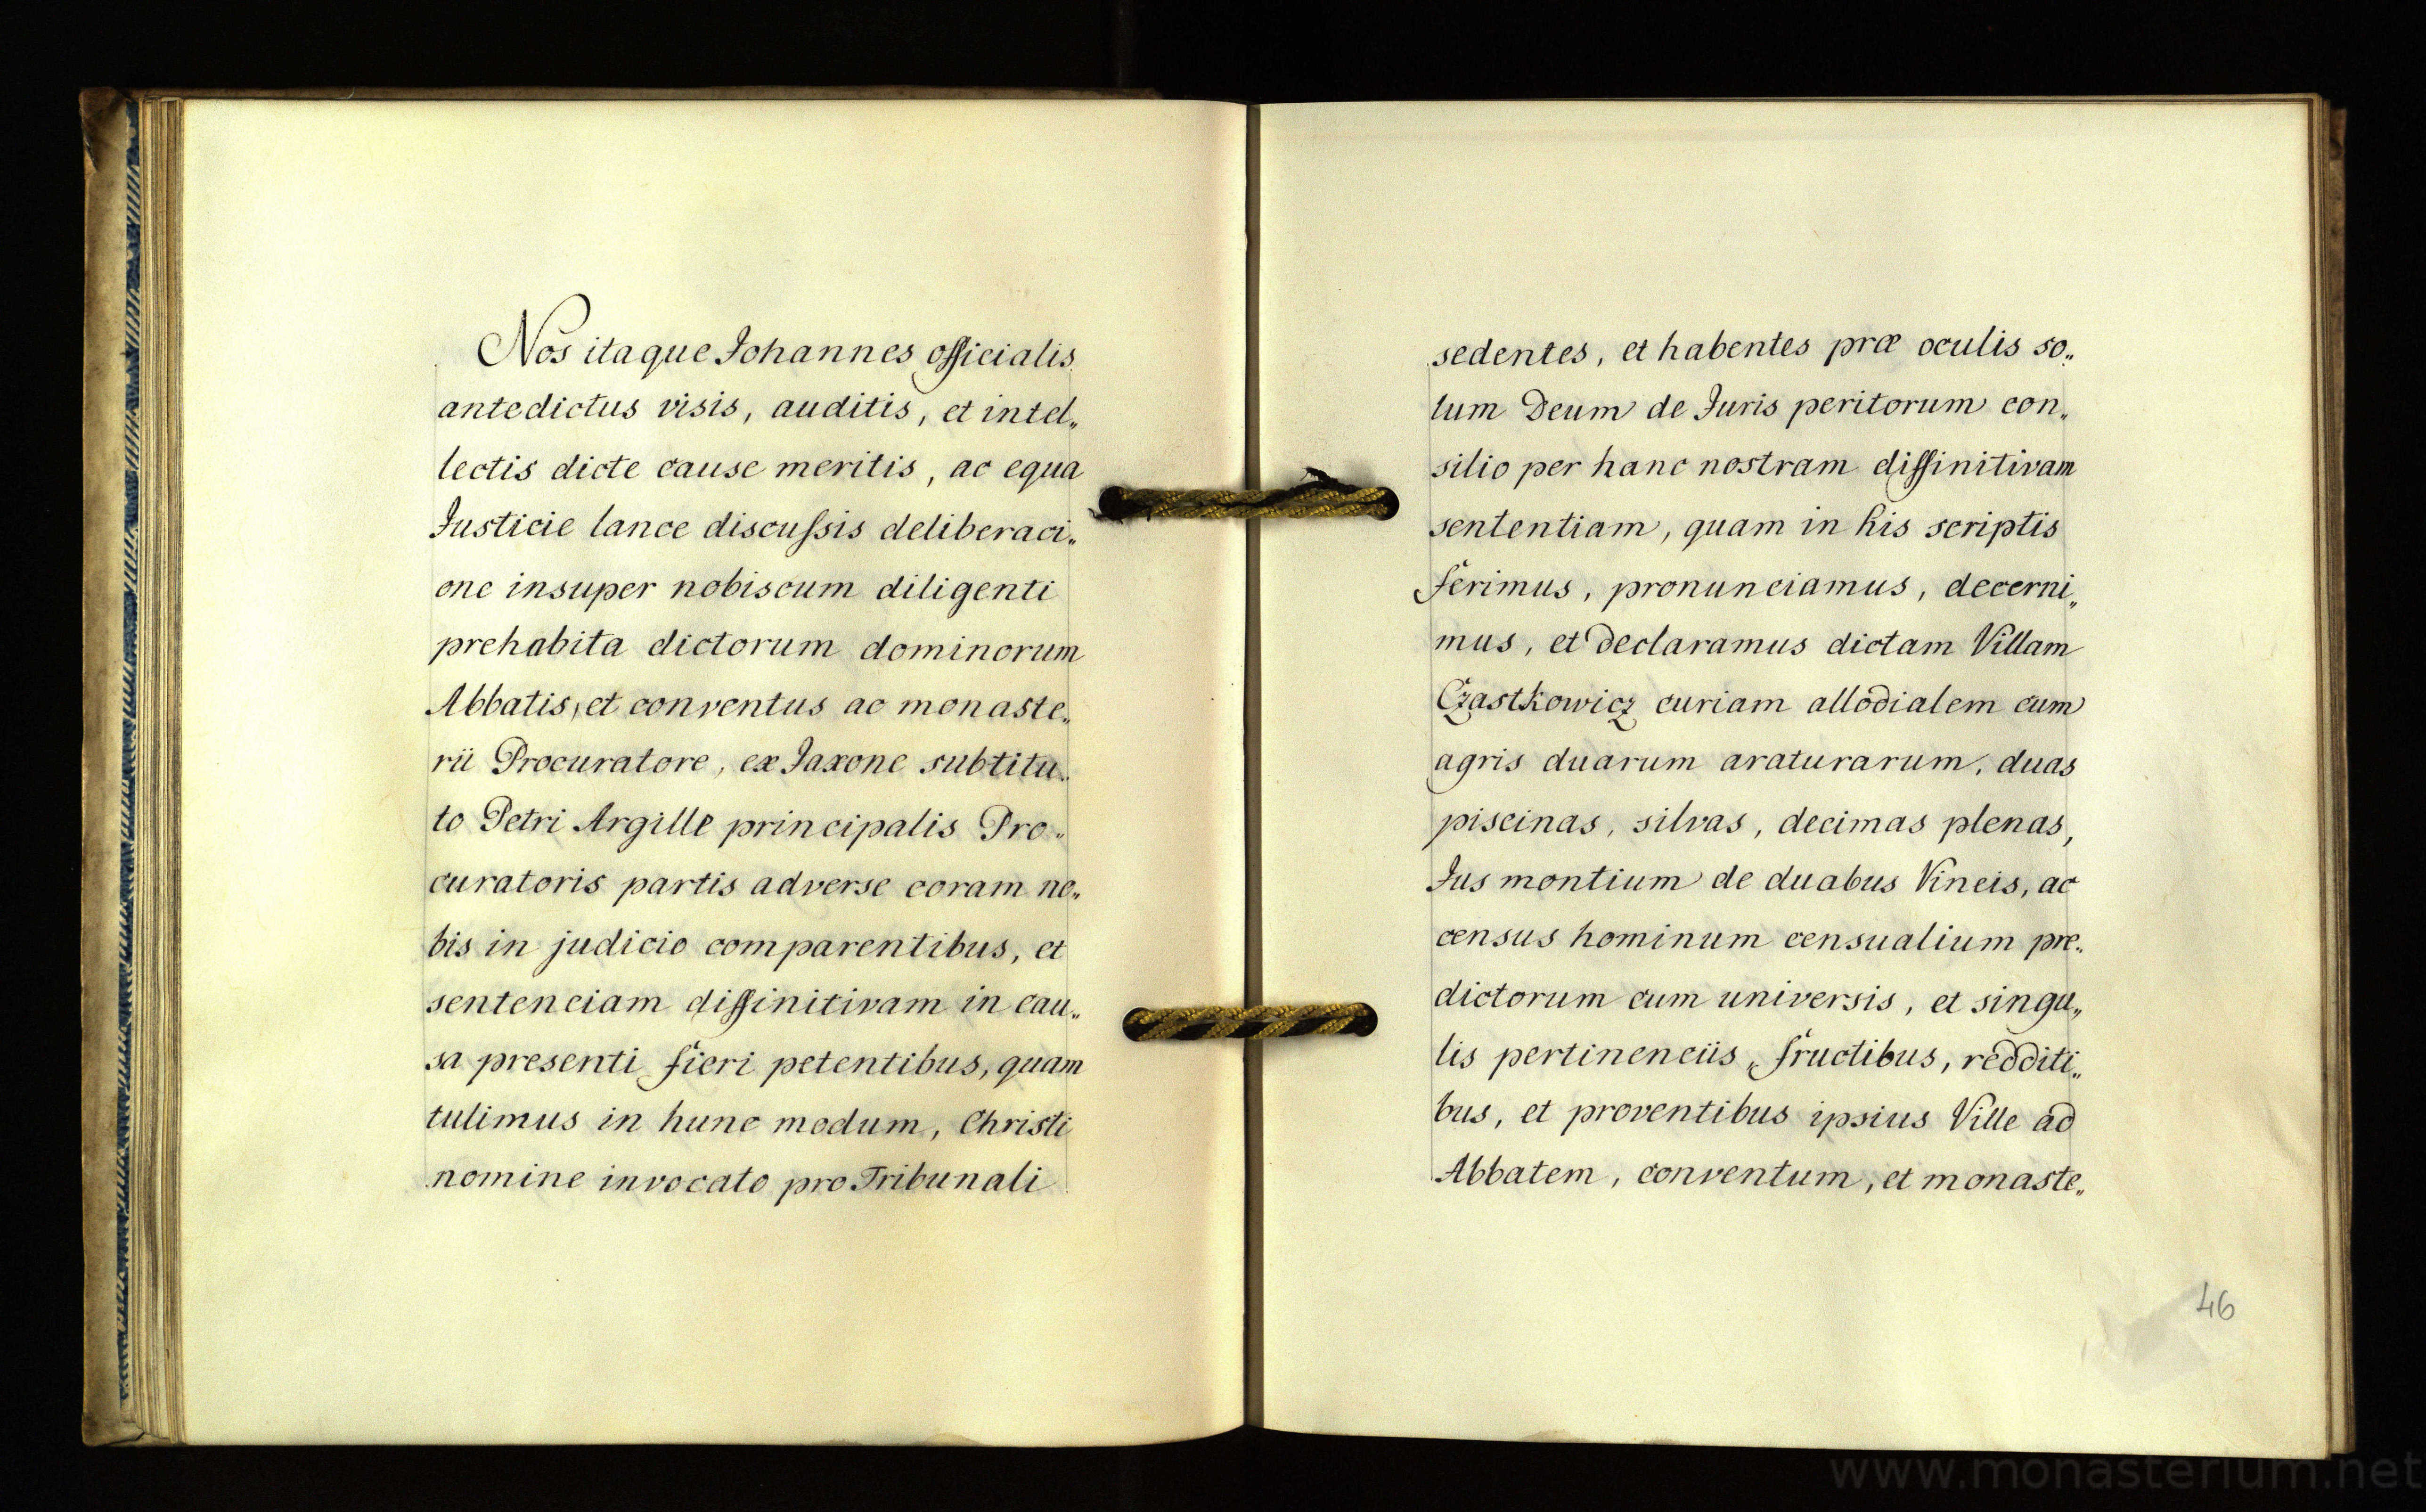 Nos itaque Johannes officialis
antedictus visis, auditis, et intel„
lectis dicte cause meritis, ac equa
Justicie lance discuſsis deliberaci„
one insuper nobiscum diligenti
prehabita dictorum dominorum
Abbatis, et conventus ac monaste„
rii Procuratore, ex Jaxone subtitu„
to Petri Argille principalis Pro„
curatoris partis adverse coram no„
bis in judicio comparentibus, et
sentenciam diffinitivam in cau„
sa presenti fieri petentibus, quam
tulimus in hunc modum, Christi
nomine invocato pro Tribunali
sedentes, et habentes præ oculis so„
lum Deum de Juris peritorum con„
silio per hanc nostram diffinitivam
sententiam, quam in his scriptis
ferimus, pronunciamus, decerni„
mus, et declaramus dictam Villam
Czastkowicz curiam allodialem cum
agris duarum araturarum, duas
piscinas, silvas, decimas plenas,
Jus montium de duabus Vineis, ac
census hominum censualium pre„
dictorum cum universis, et singu„
lis pertinenciis, fructibus, redditi„
bus, et proventibus ipsius Ville ad
Abbatem, conventum, et monaste„
46
www.monasterium.net